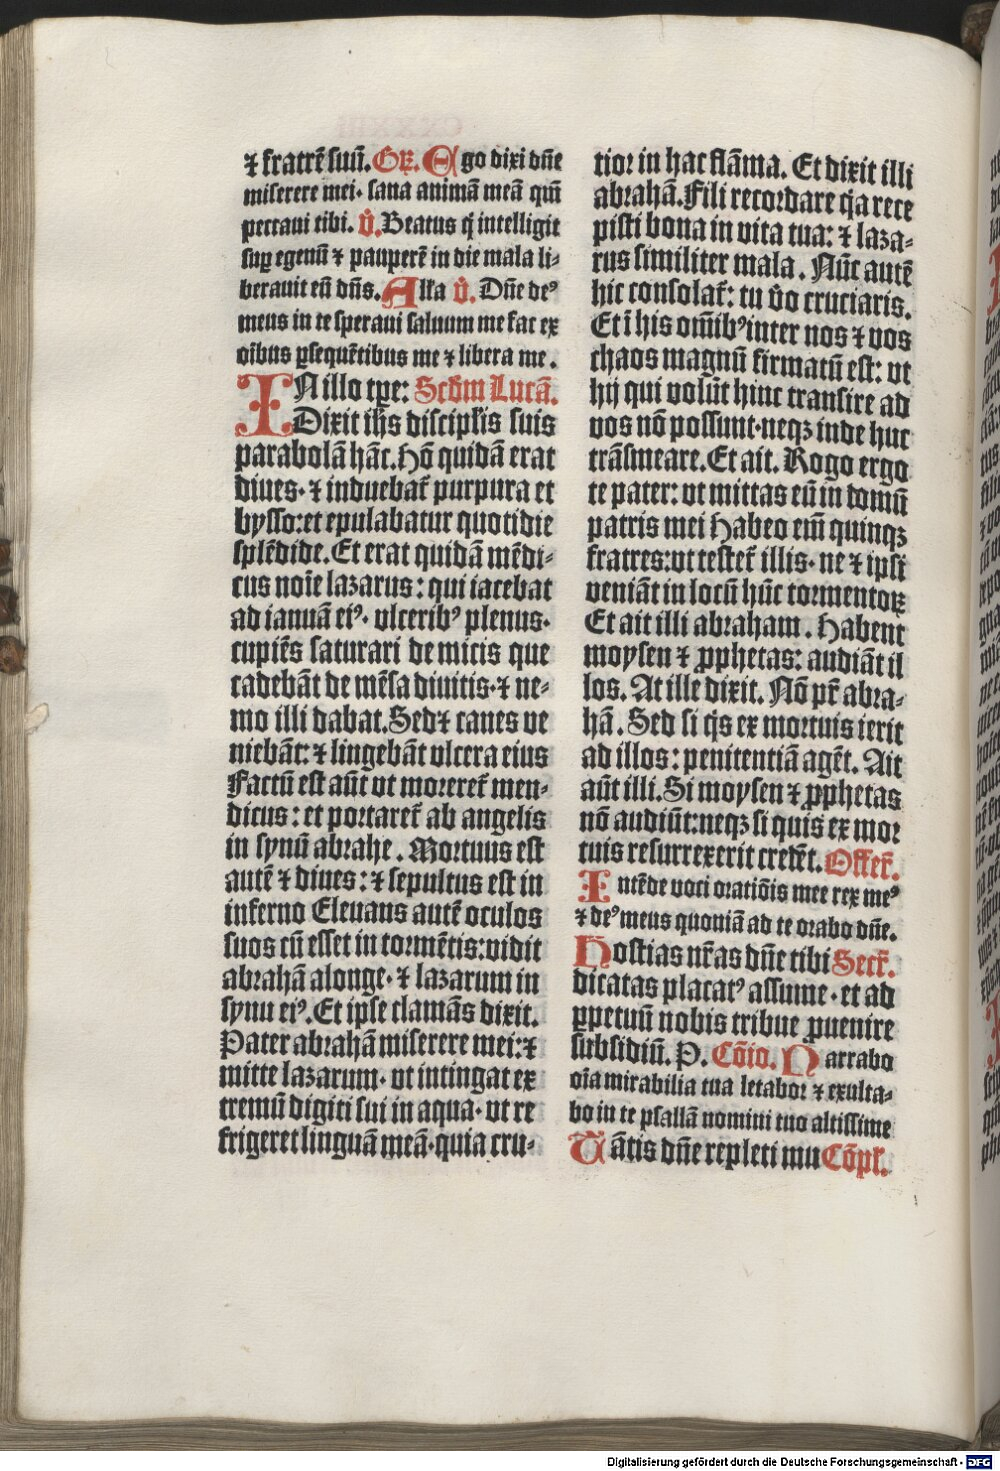 ⁊ fratrē suū. Gꝶ. Ego dixi dñe
miserere mei· sana animā meā qm̄
peccaui tibi. v̊. Beatus q̇ intelligit
sup̱ egenū ⁊ pauperē in die mala li-
berauit eū dn̄s. Alľa v̊. Dñe deꝰ
meus in te speraui saluum me fac ex
oı̄bus ꝑsequētibus me ⁊ libera me.
IN illo tp̱e: Scd̄m Lucā.
Dixit ih̄s discipľis suis
parabolā hāc. Hō quidā erat
diues· ⁊ induebať purpura et
bysso: et epulabatur quotidie
splēdide. Et erat quidā mēdi-
cus noı̄e lazarus: qui iacebat
ad ianuā eiꝰ· vlceribꝰ plenus·
cupiēs saturari de micis que
cadebāt de mēsa diuitis· ⁊ ne-
mo illi dabat. Sed ⁊ canes ve
niebāt: ⁊ lingebāt vlcera eius
Factū est aūt vt moreret̄ men-
dicus: et portaret̄ ab angelis
in synū abrahe. Mortuus est
autē ⁊ diues: ⁊ sepultus est in
inferno Eleuans autē oculos
suos cū esset in tormētis: vidit
abrahā alonge· ⁊ lazarum in
synu eiꝰ. Et ipse clamās dixit.
Pater abrahā miserere mei: ⁊
mitte lazarum· vt intingat ex
tremū digiti sui in aqua· vt re
frigeret linguā meā· quia cru-
cior in hac flāma. Et dixit illi
abrahā. Fili recordare q̇a rece
pisti bona in vita tua: ⁊ laza-
rus similiter mala. Nūc autē
hic consolat̄: tu v̊o cruciaris.
Et ī his om̄ibꝰ inter nos ⁊ vos
chaos magnū firmatū est: vt
hij qui volūt hinc transire ad
vos nō possunt· neqꝫ inde huc
trāsmeare. Et ait. Rogo ergo
te pater: vt mittas eū in domū
patris mei Habeo em̄ quinqꝫ
fratres: vt testet̄ illis· ne ⁊ ipsi
veniāt in locū hūc tormentoꝝ
Et ait illi abraham. Habent
moysen ⁊ ꝓphetas: audiāt il
los. At ille dixit. Nō pr̄ abra-
hā. Sed si q̇s ex mortuis ierit
ad illos: penitentiā agēt. Ait
aūt illi. Si moysen ⁊ ꝓphetas
nō audiūt: neqꝫ si quis ex mor
tuis resurrexerit credēt. Offer̄.
Intēde voci oratiōis mee rex meꝰ
⁊ deꝰ meus quoniā ad te orabo dñe.
Hostias nr̄as dñe tibi Secr̄.
dicatas placatꝰ assume· et ad
ꝑpetuū nobis tribue ꝓuenire
subsidiū. P. Cōio. Narrabo
oı̄a mirabilia tua letabor ⁊ exulta-
bo in te psallā nomini tuo altissime
Uātis dñe repleti mu Cōpl̄.
Digitalisierung gefördert durch die Deutsche Forschungsgemeinschaft - DFG